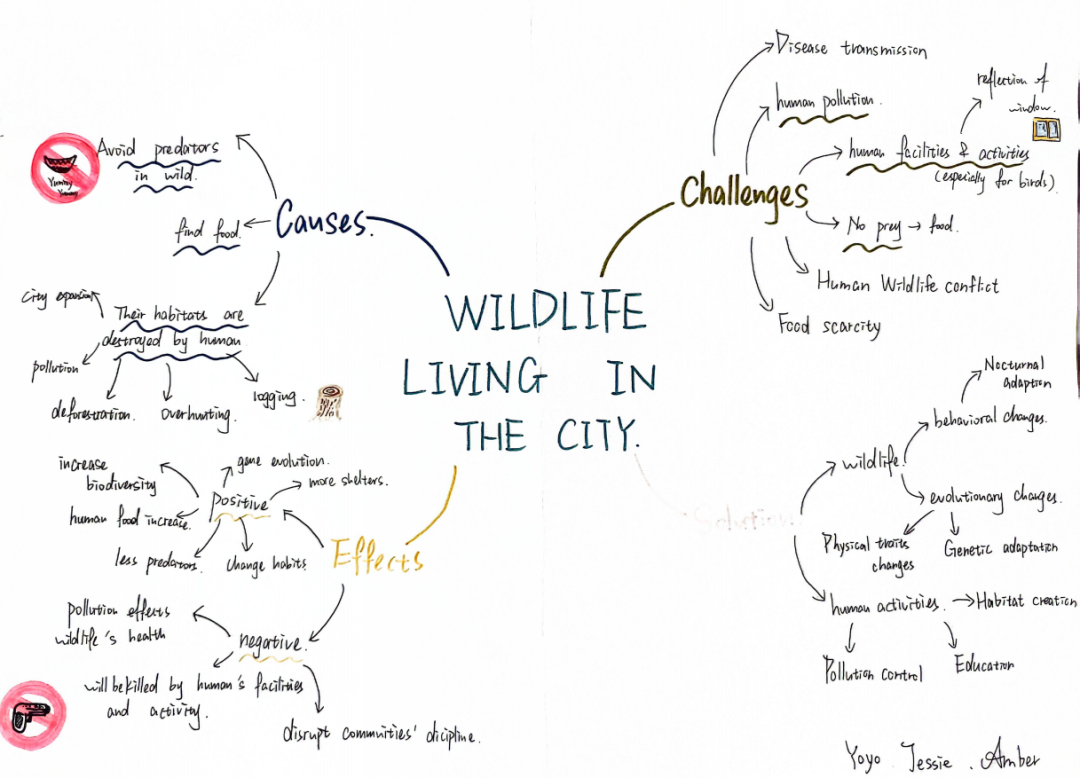 WILDLIFE
LIVING IN
THE CITY.
Causes.
Avoid predators
in wild.
Yummy
Yummy
find food.
Their habitats are
destroyed by human
city expansion
pollution
deforestration.
Overhunting.
logging.
Effects
Positive
increase
biodiversity
gene evolution.
more shelters.
human food increase.
less predators.
change habits.
negative.
pollution effects
wildlife's health
will be killed by human's facilities
and activity.
disrupt communities' dicipline.
Challenges
Disease transmission
human pollution.
human facilities & activities
(especially for birds)
reflection of
window.
No prey → food.
Human Wildlife conflict
Food scarcity
Solution.
wildlife.
behavioral changes.
Nocturnal
adaption
evolutionary changes.
Physical traits
changes
Genetic adaptation
human activities.
Habitat creation
Pollution control
Education
Yoyo . Jessie . Amber